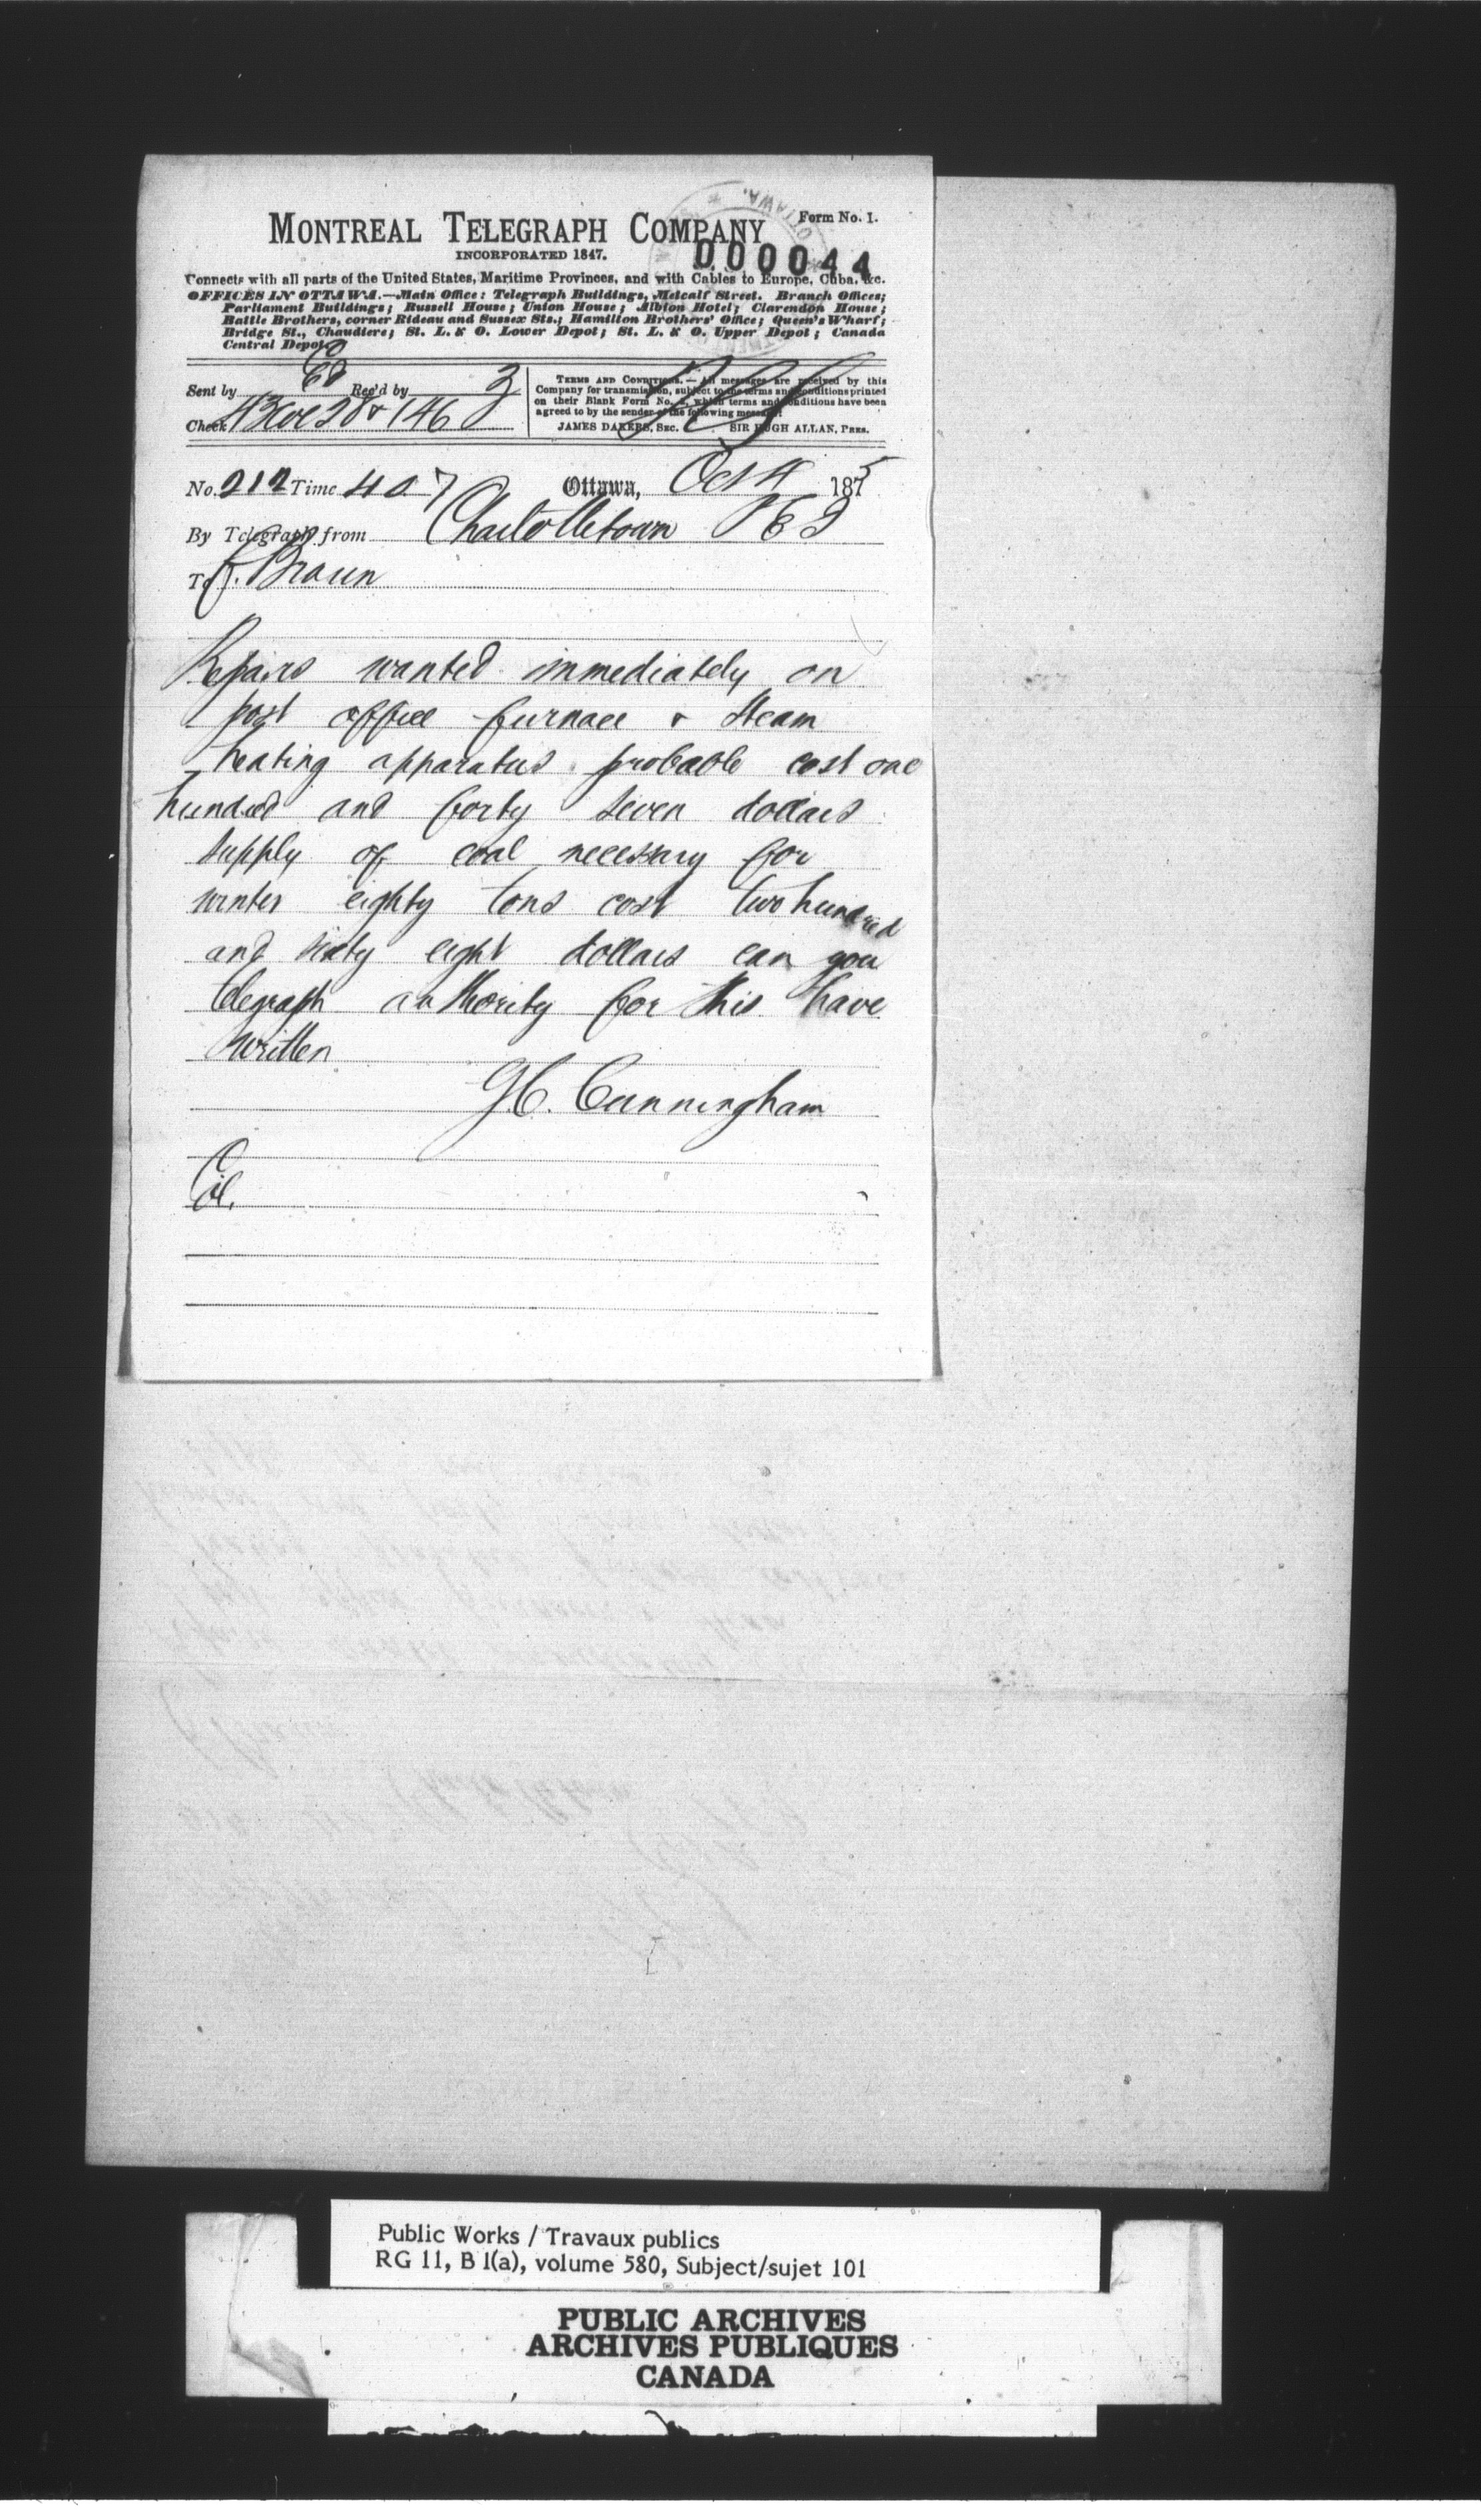 Form No. 1.
MONTREAL TELEGRAPH COMPANY
INCORPORATED 1847.
000044
Connects with all parts of the United States, Maritime Provinces, and with Cables to Europe, Cuba, &c.
OFFICES IN OTTAWA.—Main Office: Telegraph Buildings, Metcalf Street. Branch Offices;
Parliament Buildings; Russell House; Union House; Albion Hotel; Clarendon House;
Battle Brothers, corner Rideau and Sussex Sts.; Hamilton Brothers' Office; Queen's Wharf;
Bridge St., Chaudiere; St. L. & O. Lower Depot; St. L. & O. Upper Depot; Canada
Central Depot.
Sent by Rec'd by
Check
TERMS AND CONDITIONS.—All messages are received by this
Company for transmission, subject to the terms and conditions printed
on their Blank Form No. 2, which terms and conditions have been
agreed to by the sender of the following message.
JAMES DAKERS, SEC. SIR HUGH ALLAN, PRES.
No. 212 Time 407 Ottawa, Oct 4 1875
By Telegraph from Charlottetown P E I
To F. Braun
Repairs wanted immediately on
post office furnace & steam
heating apparatus probable cost one
hundred and forty seven dollars
supply of coal necessary for
winter eighty tons cost two hundred
and sixty eight dollars can you
telegraph authority for this have
written
J.C. Cunningham
Public Works / Travaux publics
RG 11, B 1(a), volume 580, Subject/sujet 101
PUBLIC ARCHIVES
ARCHIVES PUBLIQUES
CANADA